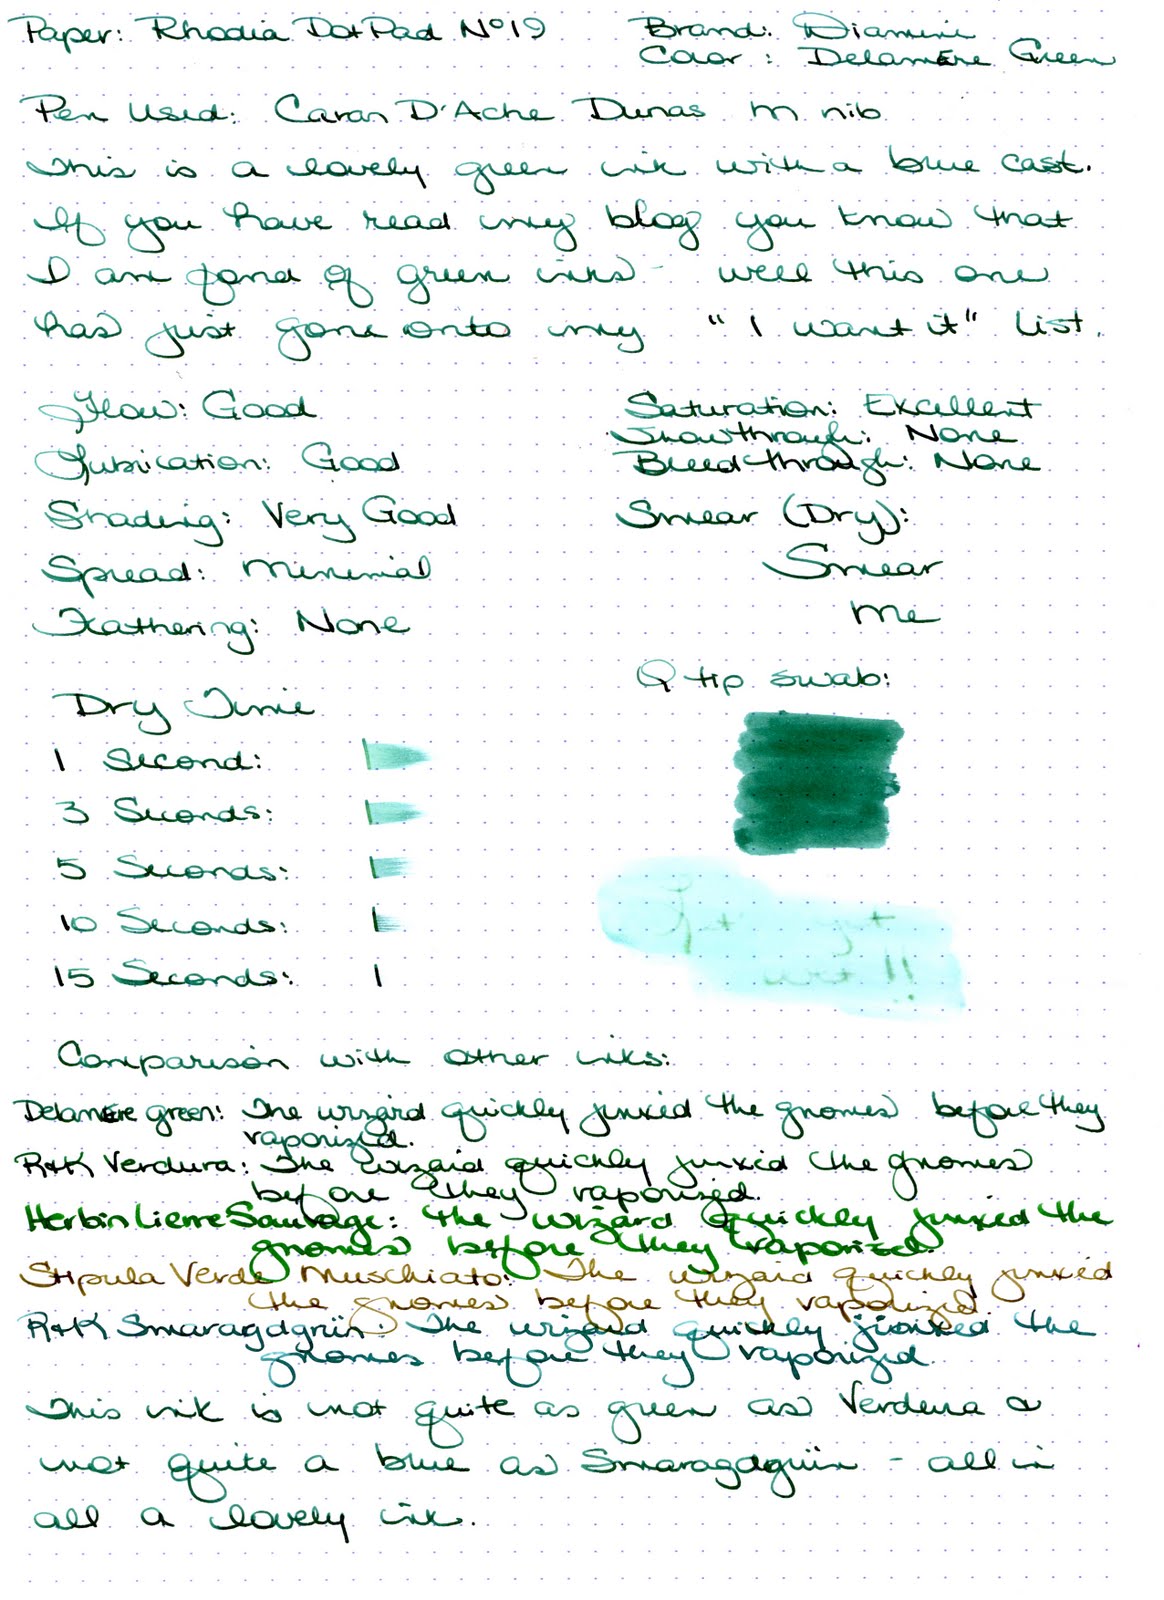 Paper: Rhodia Dot Pad Nº19
Brand: Diamine
Color: Delamere Green
Pen Used: Caran D'Ache Dunas M nib
This is a lovely green ink with a blue cast.
If you have read my blog you know that
I am fond of green inks - well this one
has just gone onto my "I want it" list.
Flow: Good
Lubrication: Good
Shading: Very Good
Spread: Minimal
Feathering: None
Saturation: Excellent
Showthrough: None
Bleedthrough: None
Smear (Dry):
Smear
Me
Dry Time
1 Second:
3 Seconds:
5 Seconds:
10 Seconds:
15 Seconds:
Q tip swab:
wet!!
Comparison with other inks:
Delamere green: The wizard quickly jinxed the gnomes before they
vaporized.
R+K Verdura: The wizard quickly jinxed the gnomes
before they vaporized.
Herbin Lierre Sauvage: the wizard quickly jinxed the
gnomes before they vaporized.
Stipula Verde Muschiato: The wizard quickly jinxed
the gnomes before they vaporized.
R+K Smaragdgrün: The wizard quickly jinxed the
gnomes before they vaporized.
This ink is not quite as green as Verdura &
not quite a blue as Smaragdgrün - all in
all a lovely ink.